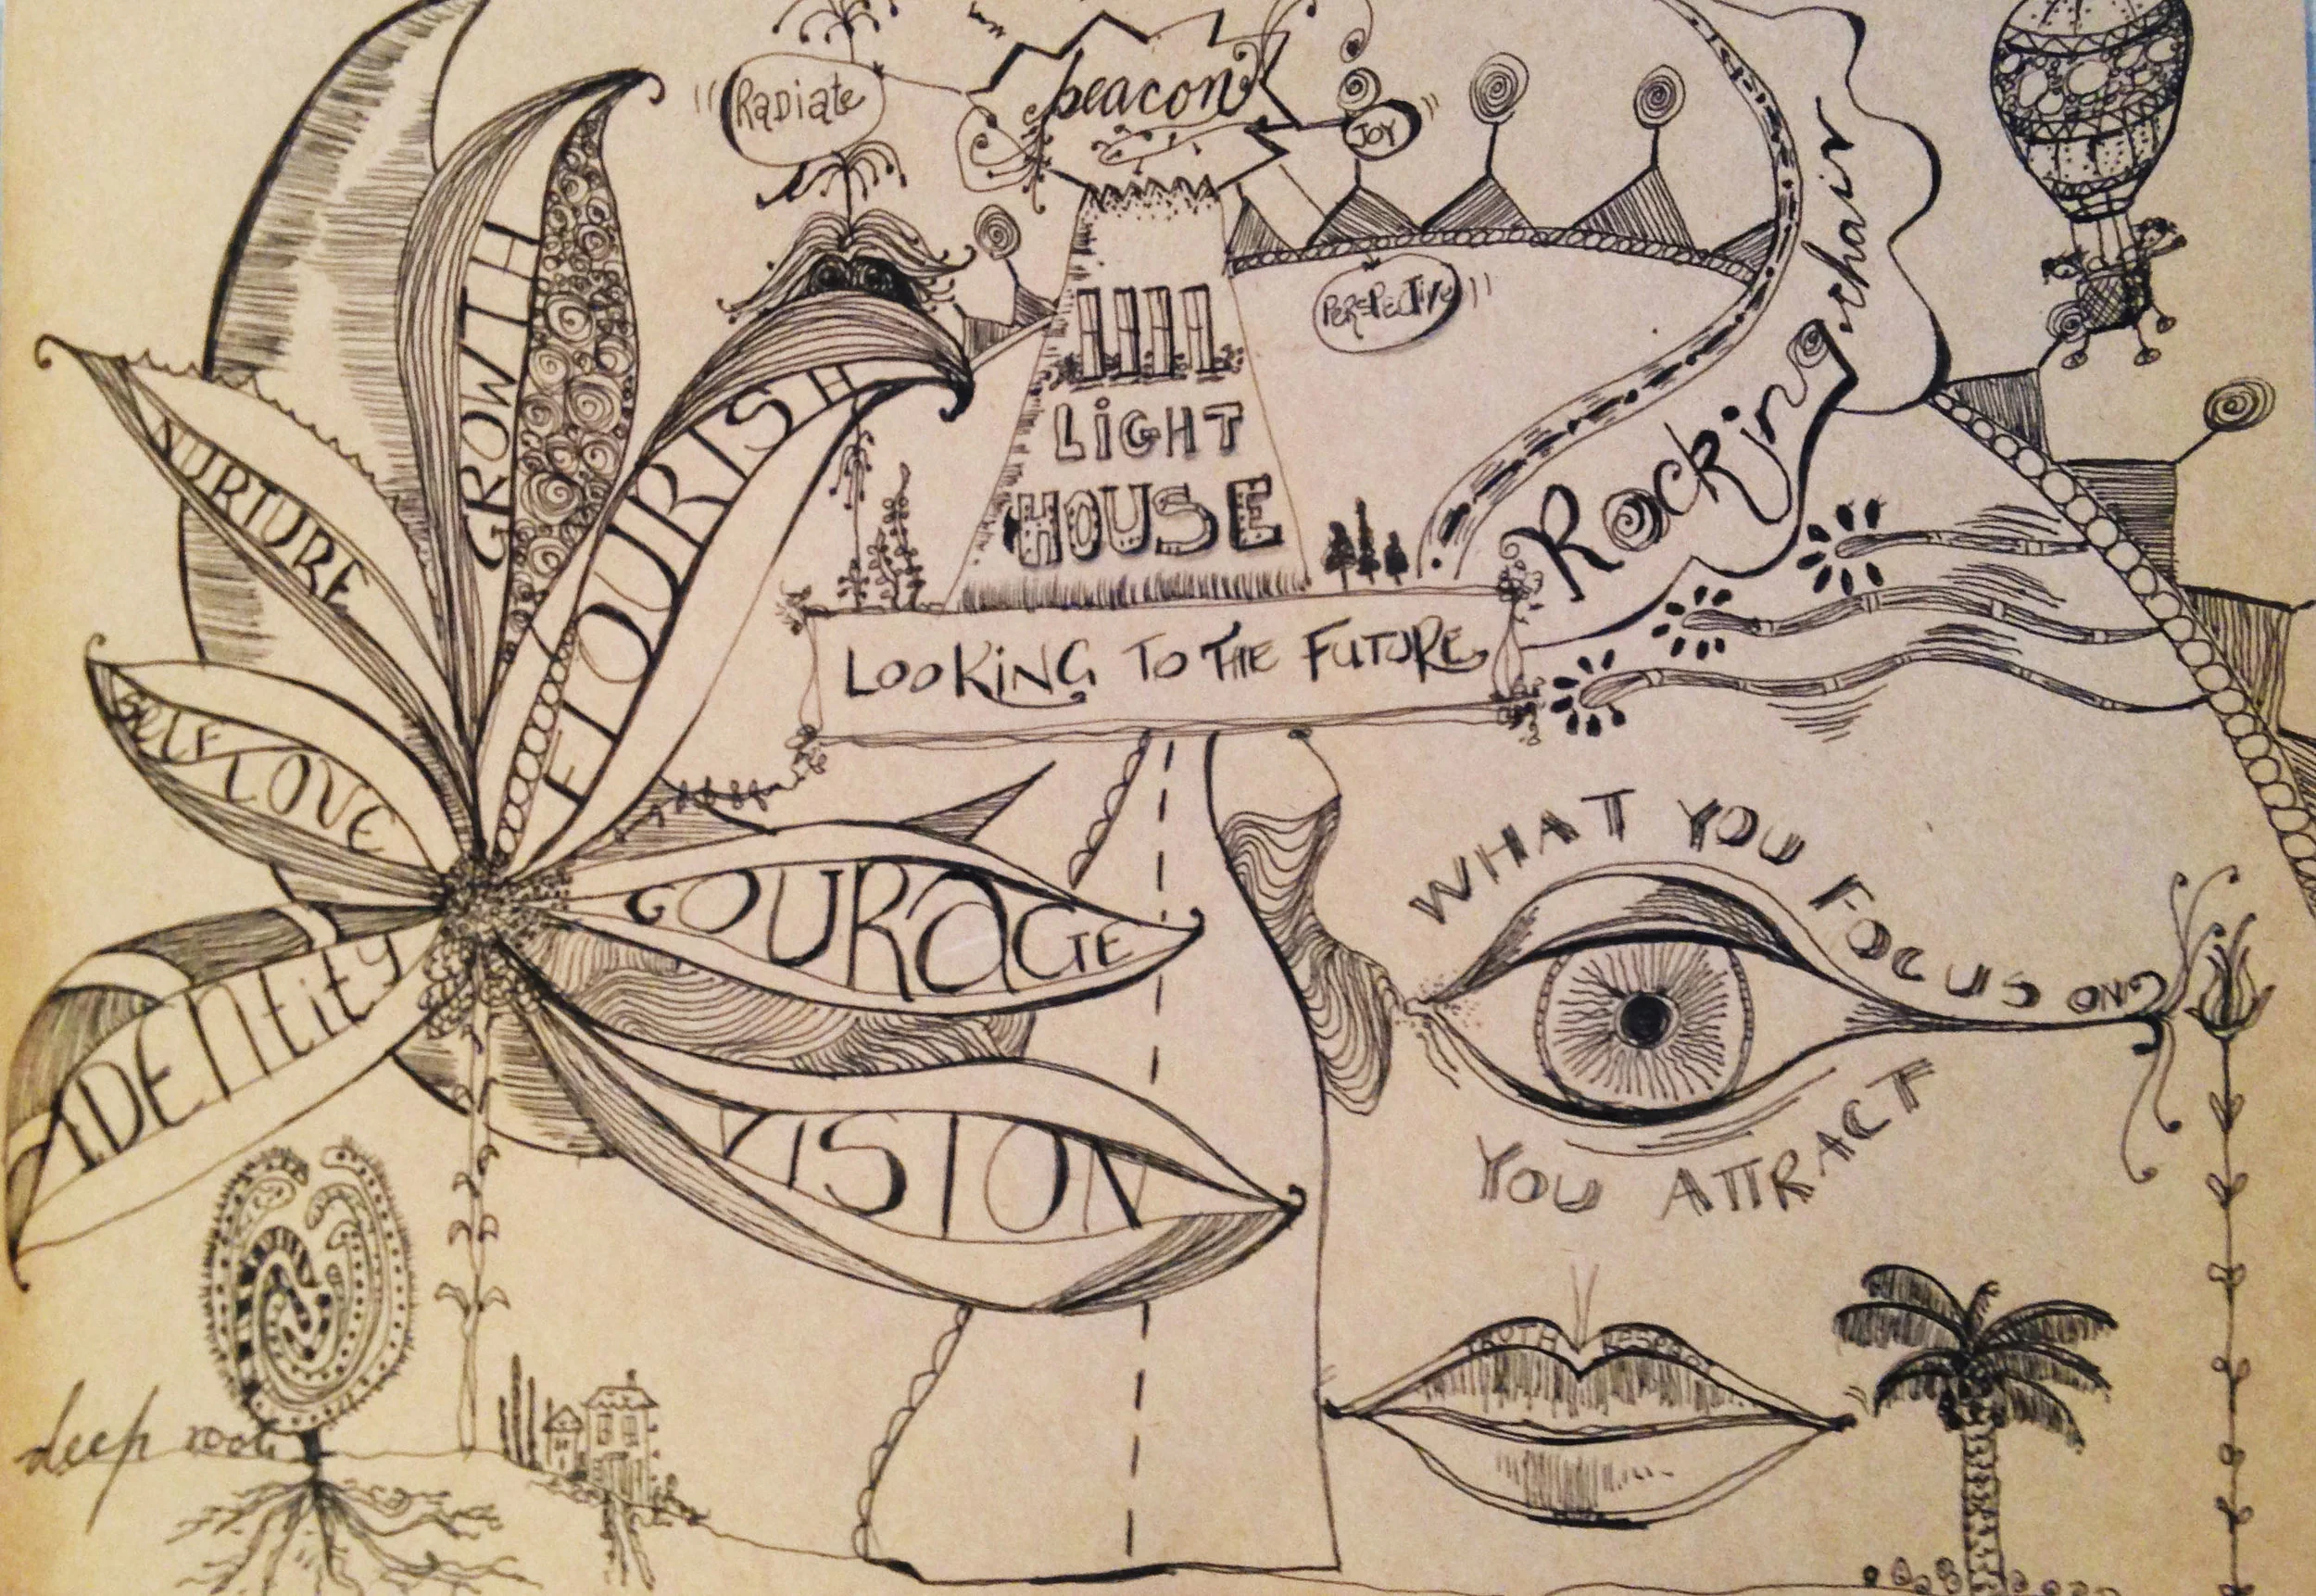 Radiate
beacon
JOY
PERSPECTIVE
Rocking chair
LIGHT
HOUSE
LOOKING TO THE FUTURE
GROWTH
NURTURE
FLOURISH
SELF LOVE
COURAGE
IDENtity
VISION
WHAT YOU FOCUS ON
YOU ATTRACT
TRUTH
deep roots